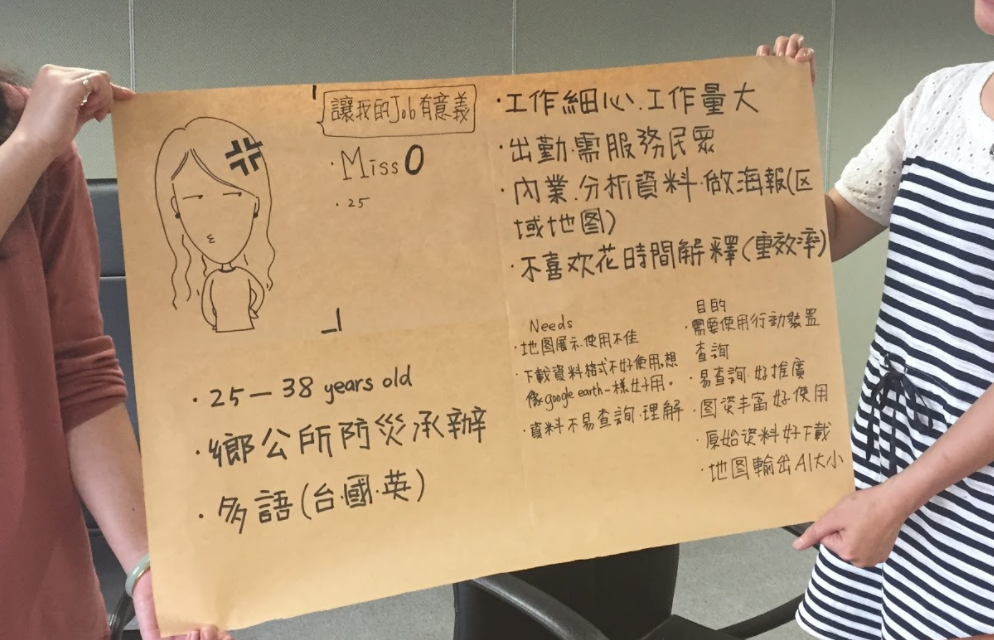 讓我的Job有意義
·Miss O
·25
·25—38 years old
·鄉公所防災承辦
·多語(台.國.英)
·工作細心.工作量大
·出勤.需服務民眾
·內業.分析資料.做海報(区
域地图)
·不喜欢花時間解釋(重效率)
Needs
·地图展示.使用不佳
·下載資料格式不好使用.想
像google earth一樣好用。
·資料不易查詢.理解
目的
·需要使用行動裝置
查詢
·易查詢.好推廣
·图资丰富好使用
·原始资料好下載
·地图輸出A1大小